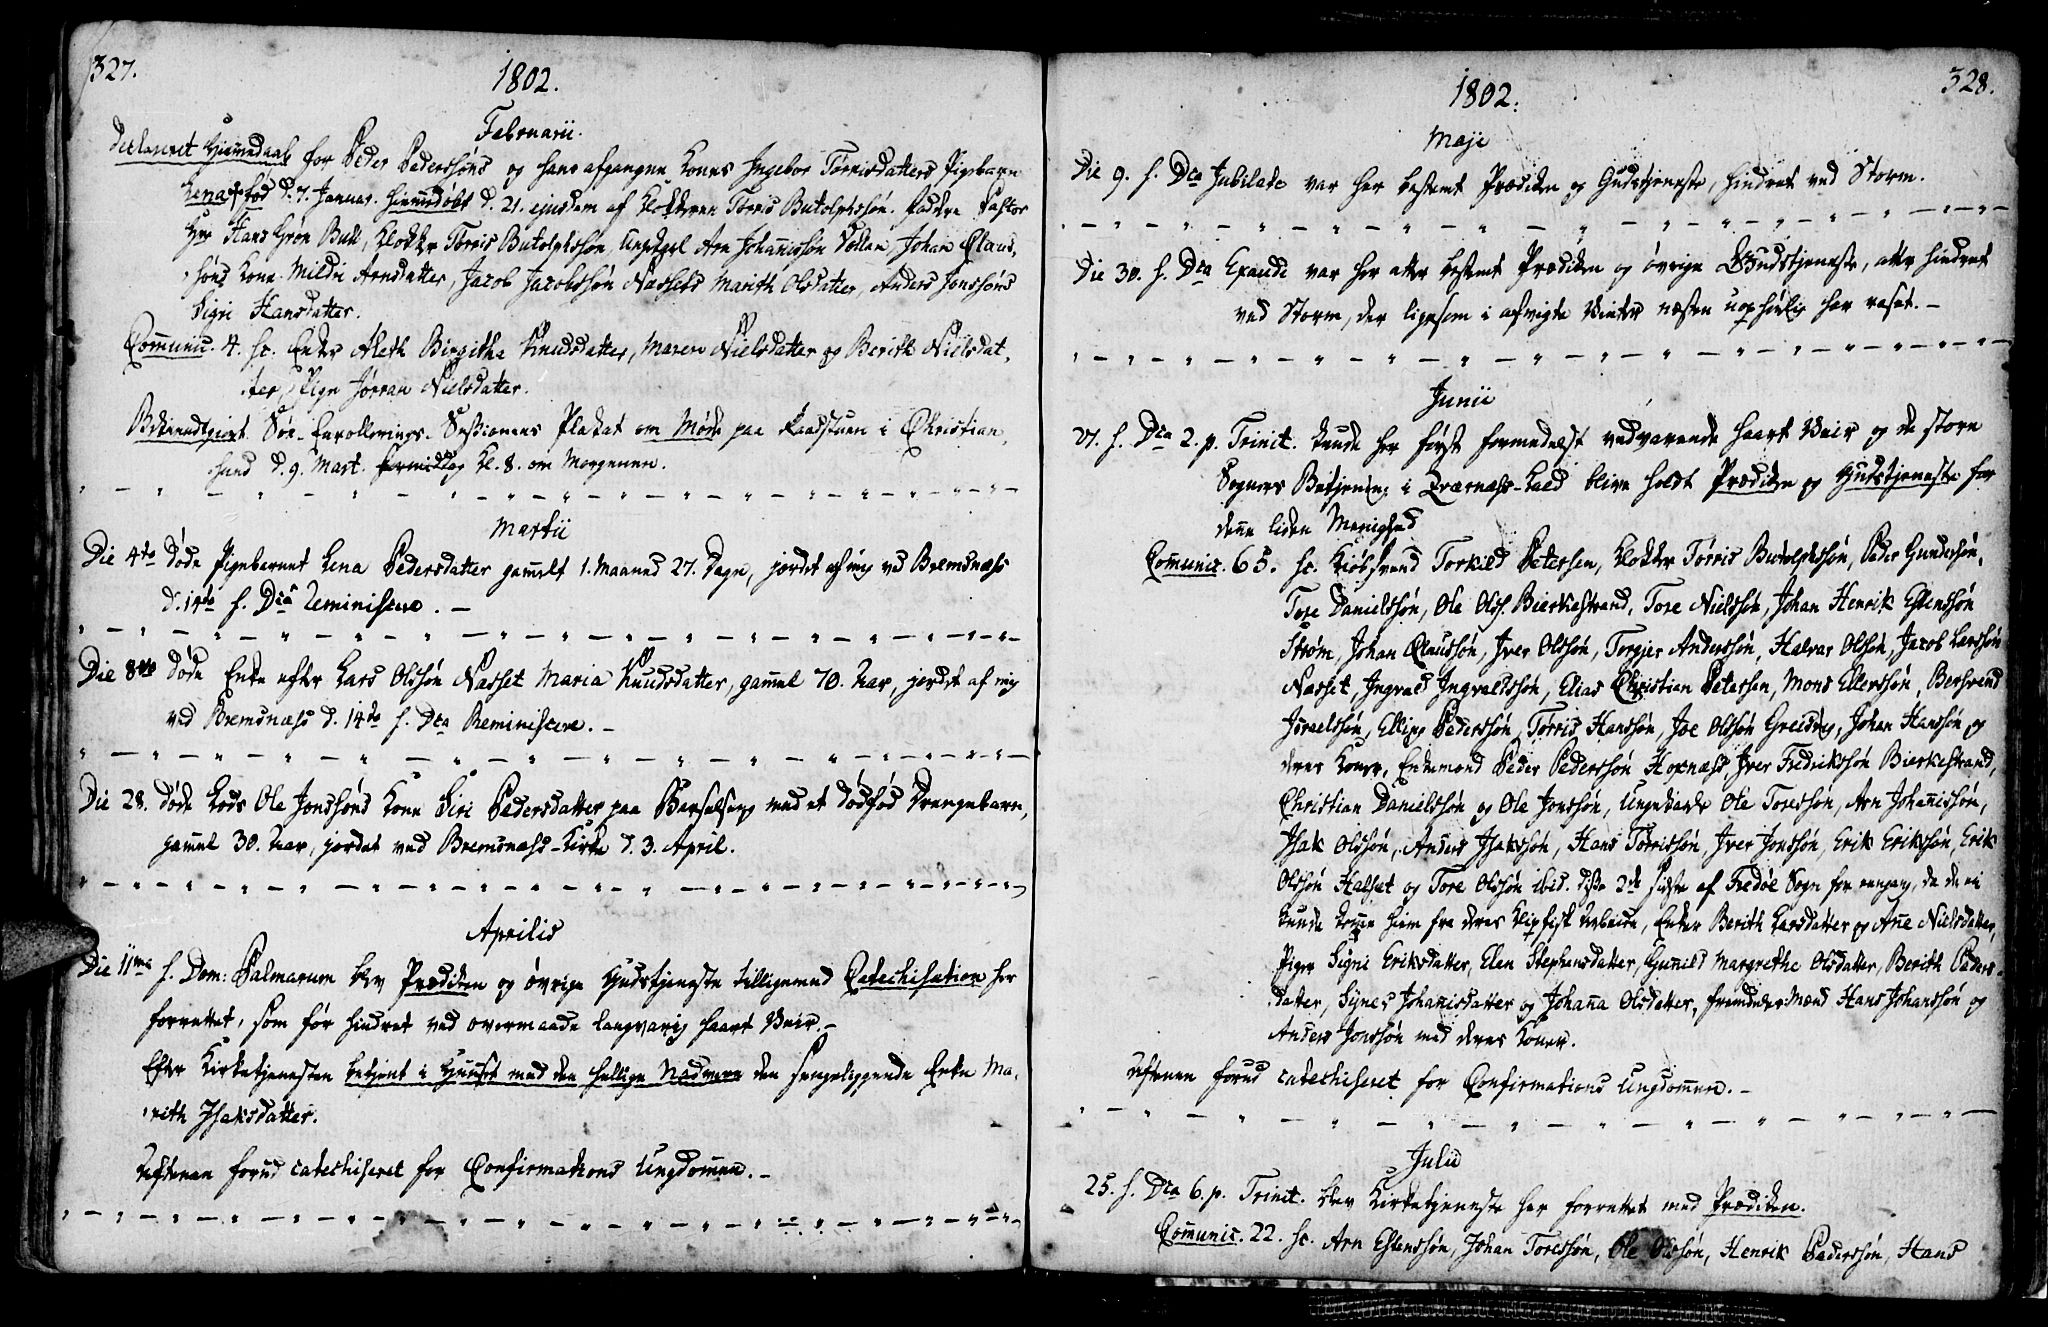 327.
1802.
Februarii.
Declareret Hiemedaab for Peder Pederssøns og hans afgangne Kones Ingebor Tørrisdatters Pigebarn
Lena fød d. 7. Januar. hiemedøbt d. 21. ejusdem af Klokkeren Tørris Butolphssøn. Faddre Pastor
Hr Hans Grøn Bull, Klokker Tørris Butolphssøn, Ungkarl Arn Johannissøn Vollen, Johan Claus-
søns Kone Mildri Arnsdatter, Jacob Jacobssøn Nassets Marith Olsdatter, Anders Jonssøns
Sigri Hansdatter.
Comunic. 4. sc. Enker Aleth Birgitha Knudsdatter, Maren Nielsdatter og Berith Nielsdat-
ter, Pige Jørran Nielsdatter.
Bekiendtgiort Søe-Enrollerings-Sessionens Plakat om Møde paa Raadstuen i Christian-
sund d. 9. Mart. formiddag Kl. 8. om Morgenen.
Martii
Die 4to døde Pigebarnet Lena Pedersdatter gamelt 1. Maaned 27. Dage, jordet af mig ved Bremsnæss
d. 14de s. Dca Reminiscere. -
Die 8vo døde Enke efter Lars Olssøn Nasset Maria Knudsdatter, gamel 70. Aar, jordet af mig
ved Bremsnæss d. 14de s. Dca Reminiscere. -
Die 28. døde Lods Ole Jonssøns Kone Siri Pedersdatter paa Barselseng med et dødfød Drengebarn,
gamel 30. Aar, jordet ved Bremsnæss-Kirke d. 3. April.
Aprilis
Die 11ma s. Dom: Palmarum blev Prædiken og øvrige Gudstjeneste tilligemed Catechisation her
forrettet, som før hindret ved overmaade langvarig haart Veir. -
Efter Kirketjenesten betjent i Huuset med den hellige Nadvere den sengeliggende Enke Ma-
rith Isaksdatter.
Aftenen forud catechiseret for Confirmations Ungdommen. -
328.
1802.
Maji
Die 9. s. Dca Jubilate var her bestemt Prædiken og Gudstjeneste, hindret ved Storm.
Die 30. s. Dca Exaudi var her atter bestemt Prædiken og øvrige Gudstjeneste, atter hindret
ved Storm, der ligesom i afvigte Vinter næsten uophørlig har raset. -
Junii
27. s. Dca 2. p. Trinit. kunde her først formedelst vedvarende haart Veir og de store
Sognes Betjening i Qværnæss-Kald blive holdt Prædiken og Gudstjeneste for
denne liden Menighed
Comunic. 65. sc. Kiøbsvend Torkild Petersen, Klokker Tørris Butolphssøn, Peder Gunderssøn,
Tore Danielssøn, Ole Olss. Bierkestrand, Tore Nielssøn, Johan Henrik Estenssøn
Strøm, Johan Claussøn, Iver Olssøn, Torgier Anderssøn, Halvar Olssøn, Jacob Larssøn
Nasset, Ingvald Ingvaldssøn, Elias Christian Petersen, Mons Ellerssøn, Bersvend
Israelssøn, Elling Pederssøn, Tørris Hanssøn, Joe Olssøn Greisvig, Johan Hanssøn og
deres Koner, Enkemænd Peder Pederssøn Hoxnæss Iver Fredrikssøn Bierkestrand,
Christian Danielssøn og Ole Jonssøn, Ungekarle Ole Toressøn, Arn Johannissøn,
Isak Olssøn, Anders Isakssøn, Hans Tørrissøn, Iver Jonssøn, Erik Erikssøn, Erik
Olssøn Halset og Tore Olssøn ibid. disse 2de sidste af Fredøe Sogn for engang, da de ei
kunde komme hiem fra deres Klipfisk Arbeide, Enker Berith Larsdatter og Anne Nielsdatter,
Piger Sigri Eriksdatter, Elen Stephensdatter, Gunild Margrethe Olsdatter, Berith Peders-
datter, Synes Johanisdatter og Johanna Olsdatter, fremdeles Mænd Hans Johanssøn og
Anders Jonssøn med deres Koner.
Aftenen forud catechiseret for Confirmations Ungdommen. -
Julii
25. s. Dca 6. p. Trinit. blev Kirketjeneste her forrettet med Prædiken.
Comunic. 22. sc. Arn Estenssøn, Johan Toressøn, Ole Olssøn, Henrik Pederssøn, Hans